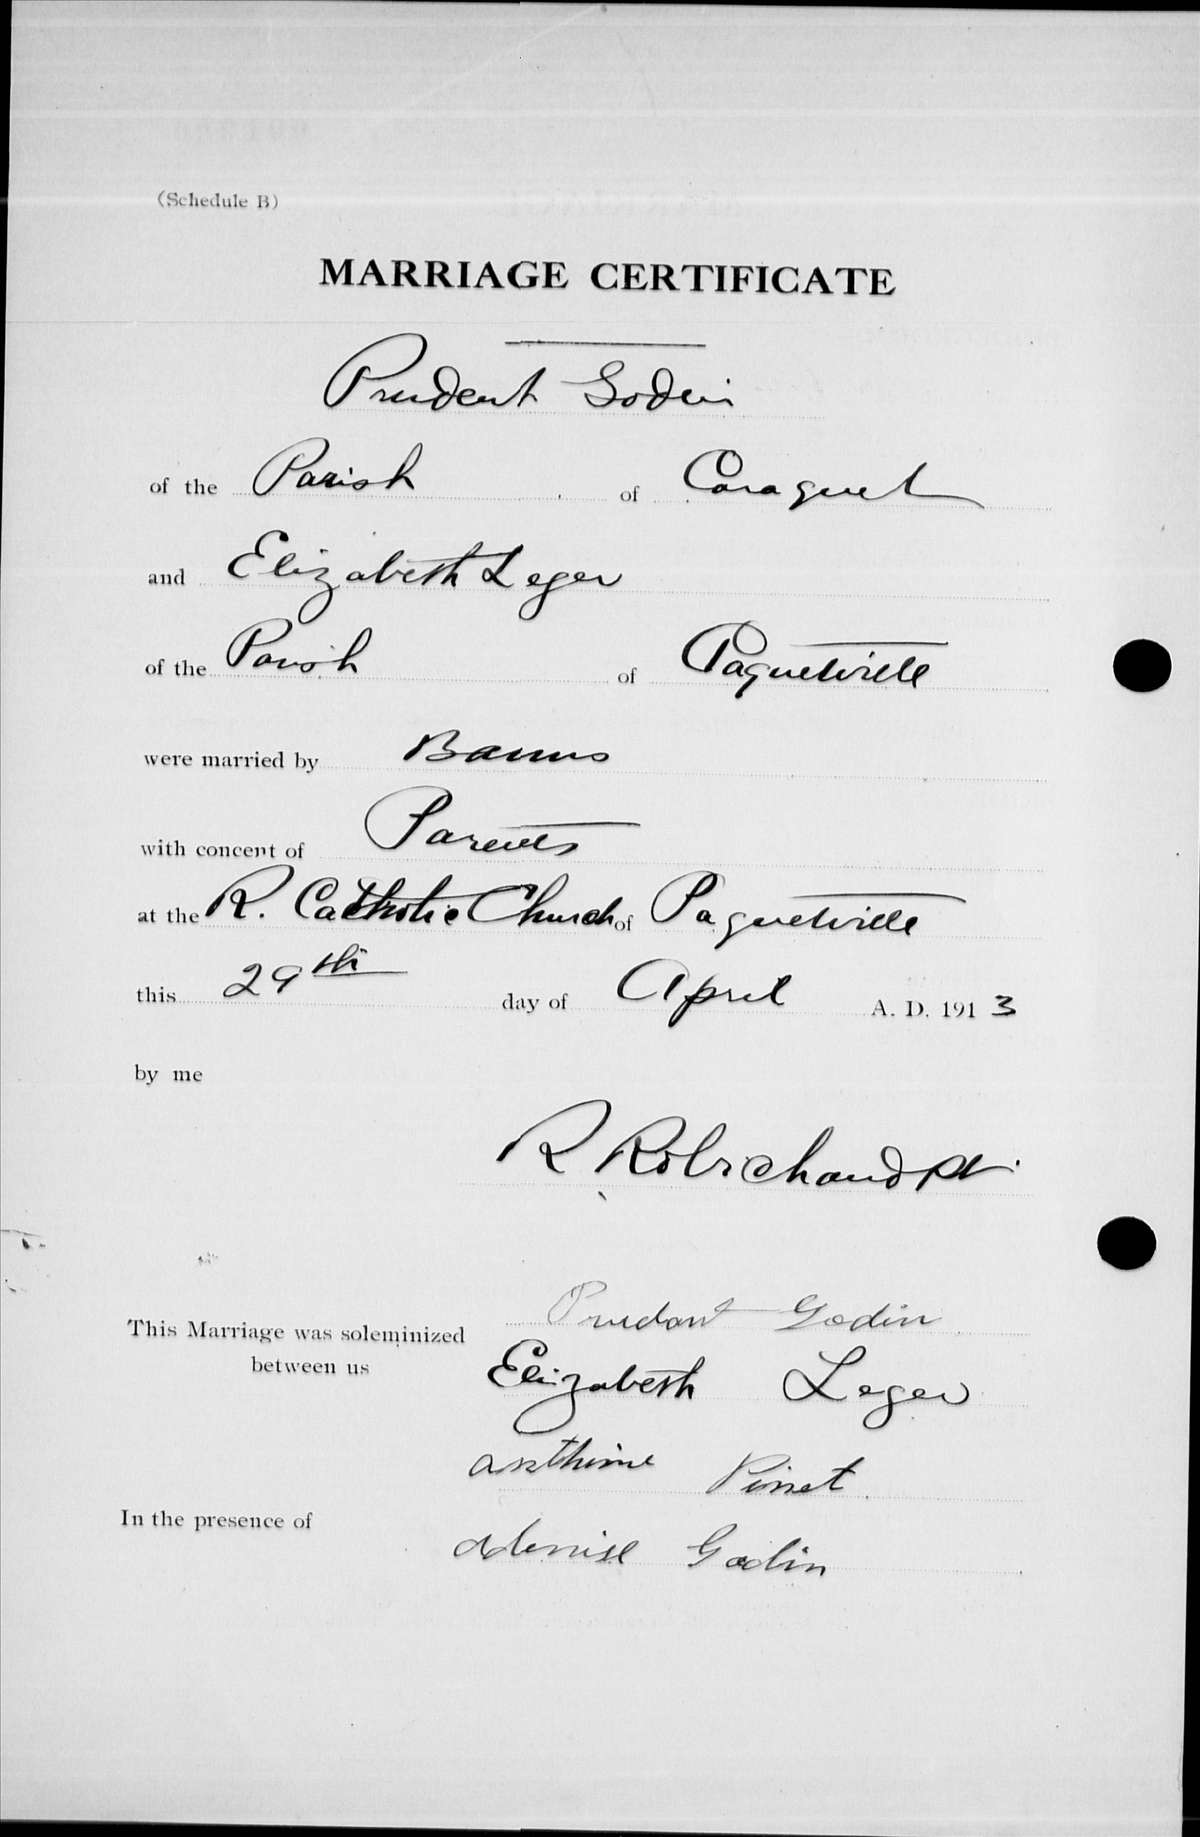 (Schedule B)
MARRIAGE CERTIFICATE
Prudent Godin
of the Parish of Caraquet
and Elizabeth Leger
of the Parish of Paquetville
were married by Banns
with concent of Parents
at the R. Catholic Church of Paquetville
this 29th day of April A. D. 1913
by me
R Robichaud ptr
This Marriage was soleminized
between us
Prudant Godin
Elizabeth Leger
anthime Pinet
In the presence of
adenise Godin